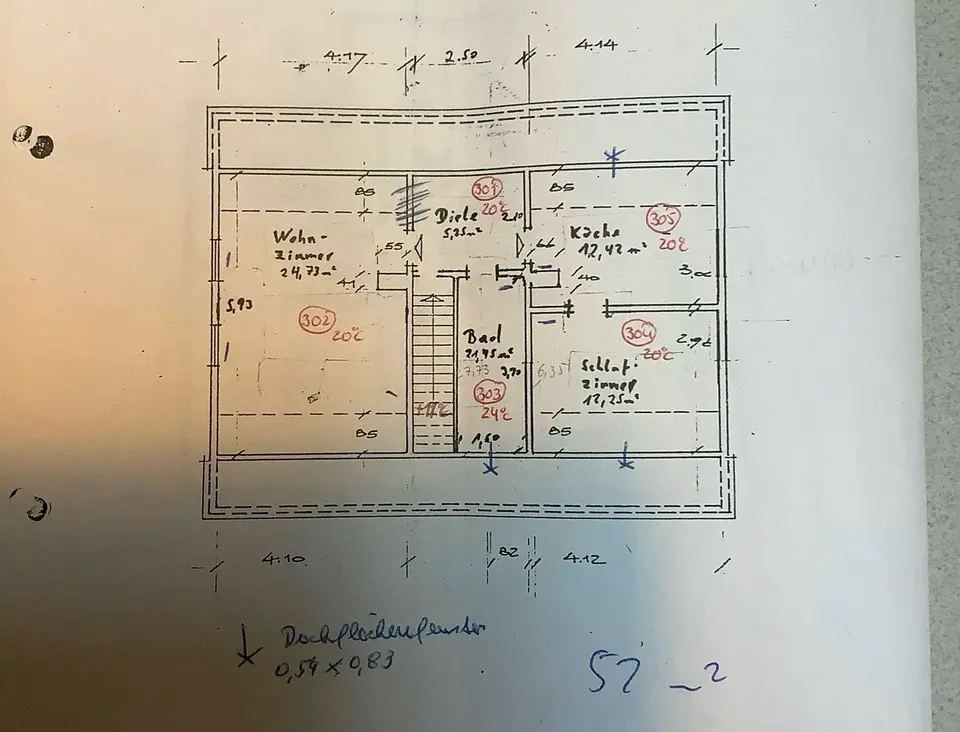 4.17
2.50
4.14
85
301
20°C
2.10
Diele
5,25m²
85
305
20°C
Küche
12,42 m²
Wohn-
zimmer
24,73m²
55
66
41
40
3,06
5,93
302
20°C
Bad
21,45m²
7,73
3,70
303
24°C
6,35
304
20°C
2.96
Schlaf-
zimmer
12,25m²
85
1,60
85
4.10
82
4.12
Dachflächenfenster
0,54 x 0,83